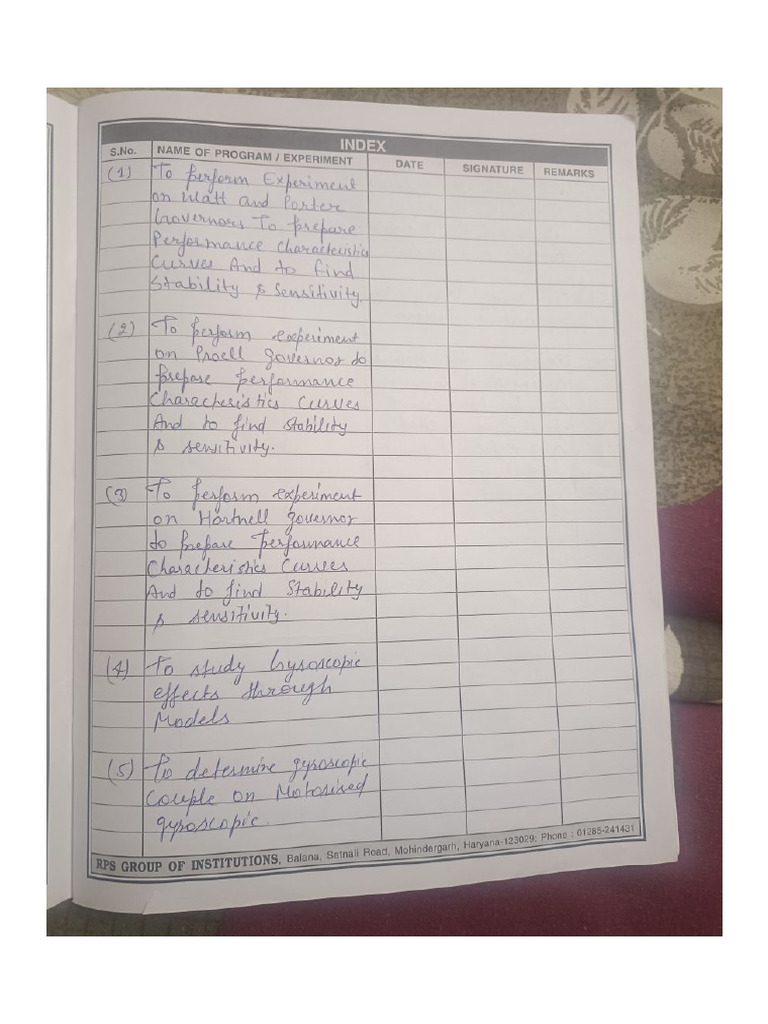 INDEX
S.No. NAME OF PROGRAM / EXPERIMENT DATE SIGNATURE REMARKS
(1) To perform Experiment
on Watt and Porter
Governors To prepare
Performance Characteristics
Curves And to find
Stability & Sensitivity
(2) To perform experiment
on Proell governor to
prepare performance
Characteristics Curves
And to find stability
& sensitivity.
(3) To perform experiment
on Hartnell governor
to prepare performance
Characteristics Curves
And to find Stability
& sensitivity.
(4) To study Gyroscopic
effects through
Models
(5) To determine gyroscopic
Couple on Motorised
gyroscopic.
RPS GROUP OF INSTITUTIONS, Balana, Satnali Road, Mohindergarh, Haryana-123029; Phone : 01285-241431